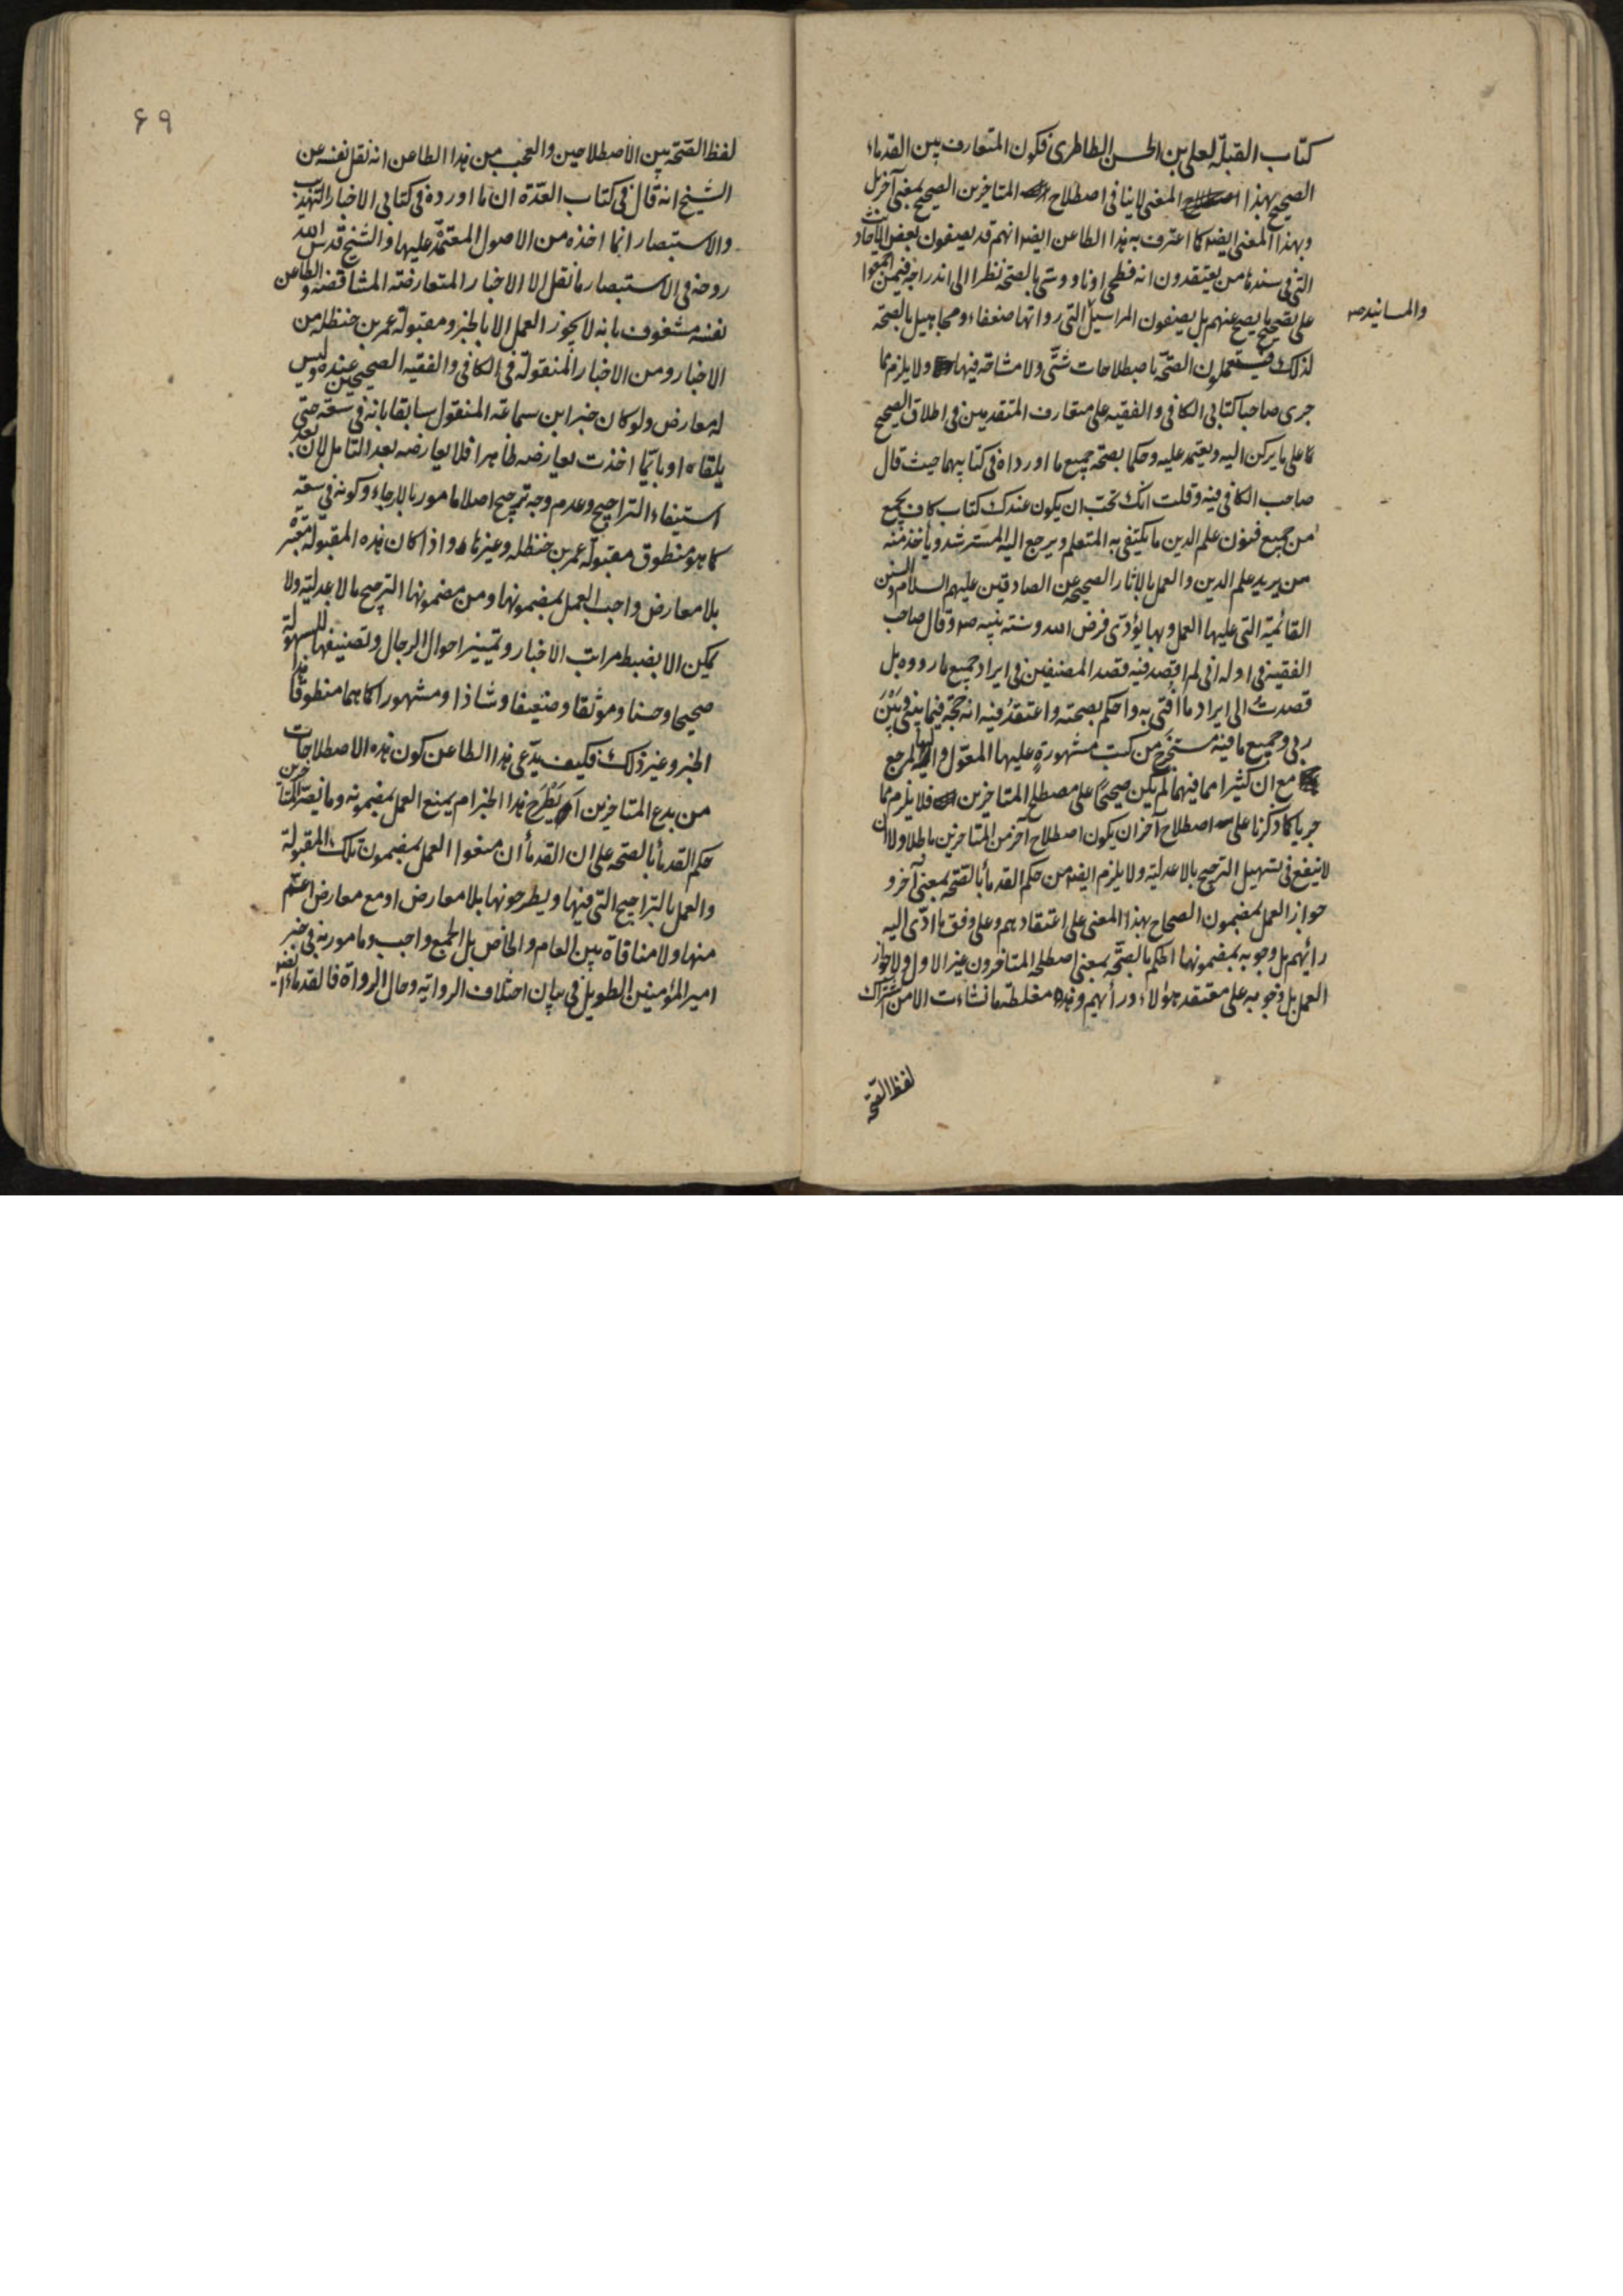 كتاب القبلة لعلي بن الحسن الطاطري فكون المتعارف بين القدماء
الصحيح بهذا المعنى لا ينافي اصطلاح المتاخرين الصحيح بمعنى آخر بل
وبهذا المعنى ايضا كما اعترف به هذا الطاعن ايضا انهم قد يصفون بعض الاحاديث
التي في سندها من يعتقدون انه فطحي او ناووسي بالصحة نظرا الى اندراجه فيمن اجمعوا
على تصحيح ما يصح عنهم بل يصفون المراسيل التي رواتها ضعفاء ومجاهيل بالصحة
والمسانيد صح
لذلك فيستعملون الصحة باصطلاحات شتى ولا مشاحة فيها ولا يلزم مما
جرى صاحبا كتابي الكافي والفقيه على متعارف المتقدمين في اطلاق الصحيح
كما على ما يركن اليه ويعتمد عليه وحكما بصحة جميع ما اورداه في كتابيهما حيث قال
صاحب الكافي فيه وقلت انك تحب ان يكون عندك كتاب كاف يجمع
من جميع فنون علم الدين ما يكتفى به المتعلم ويرجع اليه المسترشد ويأخذ منه
من يريد علم الدين والعمل بالاثار الصحيحة عن الصادقين عليهم السلام والسنن
القائمة التي عليها العمل وبها يؤدى فرض الله وسنة نبيه ص وقال صاحب
الفقيه في اوله اني لم اقصد فيه قصد المصنفين في ايراد جميع ما رووه بل
قصدت الى ايراد ما افتى به واحكم بصحته واعتقد فيه انه حجة فيما بيني وبين
ربي وجميع ما فيه مستخرج من كتب مشهورة عليها المعول واليها المرجع
مع ان كثيرا مما فيهما لم يكن صحيحا على مصطلح المتاخرين فلا يلزم مما
جريا كما ذكرنا على اصطلاح آخر ان يكون اصطلاح آخر من المتاخرين باطلا ولا ان
لا ينفع في تسهيل الترجيح بالاعدلية ولا يلزم ايضا من حكم القدمأ بالصحة بمعنى آخر و
جواز العمل بمضمون الصحاح بهذا المعنى على اعتقادهم وعلى وفق ما ادى اليه
رأيهم بل وجوبه بمضمونها الحكم بالصحة بمعنى اصطلحه المتاخرون غير الاول ولا جواز
العمل بل وجوبه على معتقد هؤلاء ورأيهم وهذه مغلطة ما نشاءت الا من اشتراك
لفظ الصحة
۶۹
لفظ الصحة بين الاصطلاحين والعجب من هذا الطاعن انه نقل نفسه عن
الشيخ انه قال في كتاب العدة ان ما اورده في كتابي الاخبار التهذيب
والاستبصار انما اخذه من الاصول المعتمد عليها والشيخ قدس الله
روحه في الاستبصار ما نقل الا الاخبار المتعارضة المتناقضة والطاعن
نفسه مشغوف بانه لا يجوز العمل الا بالخبر ومقبولة عمر بن حنظله من
الاخبار ومن الاخبار المنقولة في الكافي والفقيه الصحيحين عنده وليس
له معارض ولو كان خبر ابن سماعة المنقول سابقا بانه في سعة حتى
يلقاه او بايما اخذت يعارضه ظاهرا فلا يعارضه بعد التامل لان بعد
استيفاء التراجيح وعدم وجه ترجيح اصلا مامور بالارجاء وكونه في سعة
كما هو منطوق مقبولة عمر بن حنظله وغيرها واذا كان هذه المقبولة معتبر
بلا معارض واجب العمل بمضمونها ومن مضمونها الترجيح بالاعدلية ولا
يمكن الا بضبط مراتب الاخبار وتمييز احوال الرجال وتصنيفها للسهولة
صحيحا وحسنا وموثقا وضعيفا وشاذا ومشهورا كما هما منطوقا هذا
الخبر وغير ذلك فكيف يدعى هذا الطاعن كون هذه الاصطلاحات
من بدع المتاخرين أيطرح هذا الخبر ام يمنع العمل بمضمونه وما نص المتاخرين
حكم القدمأ بالصحة على ان القدمأ ان منعوا العمل بمضمون تلك المقبولة
والعمل بالتراجيح التي فيها ويطرحونها بلا معارض او مع معارض اعم
منها ولا منافاة بين العام والخاص بل الجمع واجب ومامور به في خبر
امير المؤمنين الطويل في بيان اختلاف الرواية وحال الرواة فالقدماء ايضا